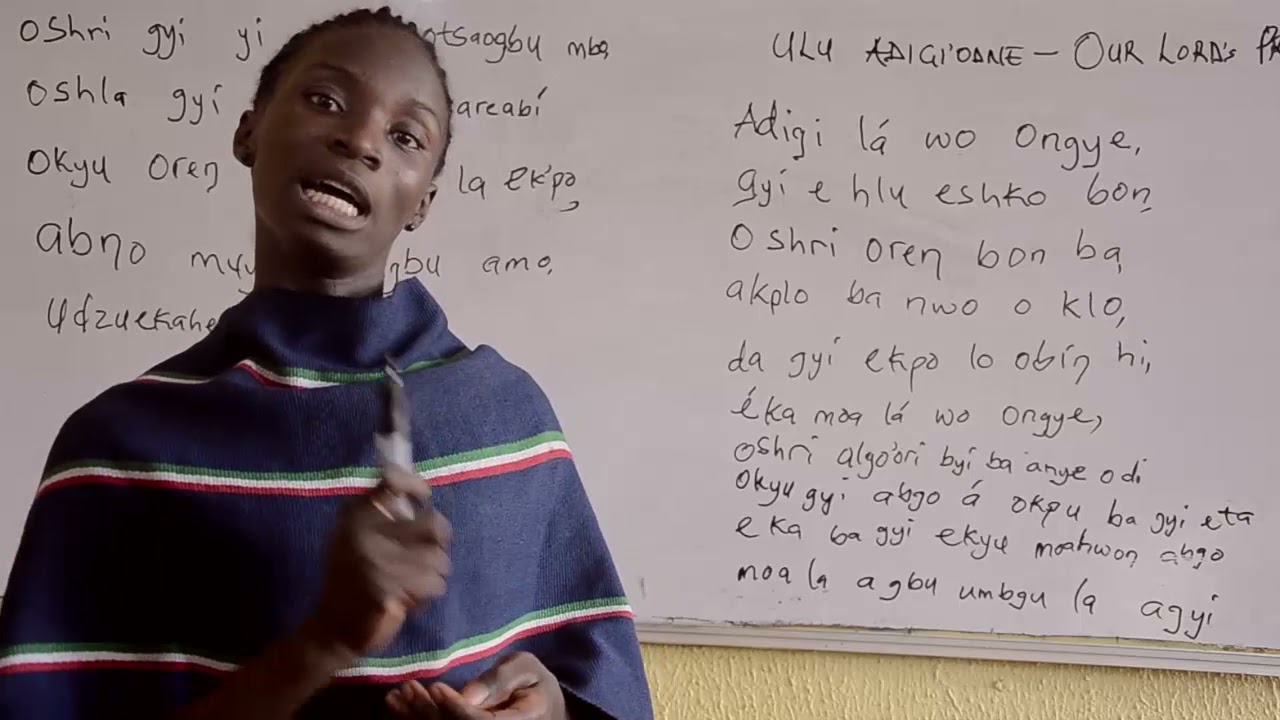 Oshri gyi yi otsaogbu mba
Oshla gyi areabí
Okyu oreŋ la ekpo,
abŋo gbu amo,
ULU ADIGI'ODNE — OUR LORD's
Adigi lá wo Ongye,
gyí e hlu eshko boŋ
Oshri oreŋ bon ba
akplo ba nwo o klo,
da gyí ekpo lo obíŋ hi,
éka moa lá wo Ongye,
oshri algo'ori byi ba anye odi
Okyu gyi abgo á okpu ba gyi eta
eka ba gyi ekyu moahwoŋ abgo
moa la agbu umbgu la agyi